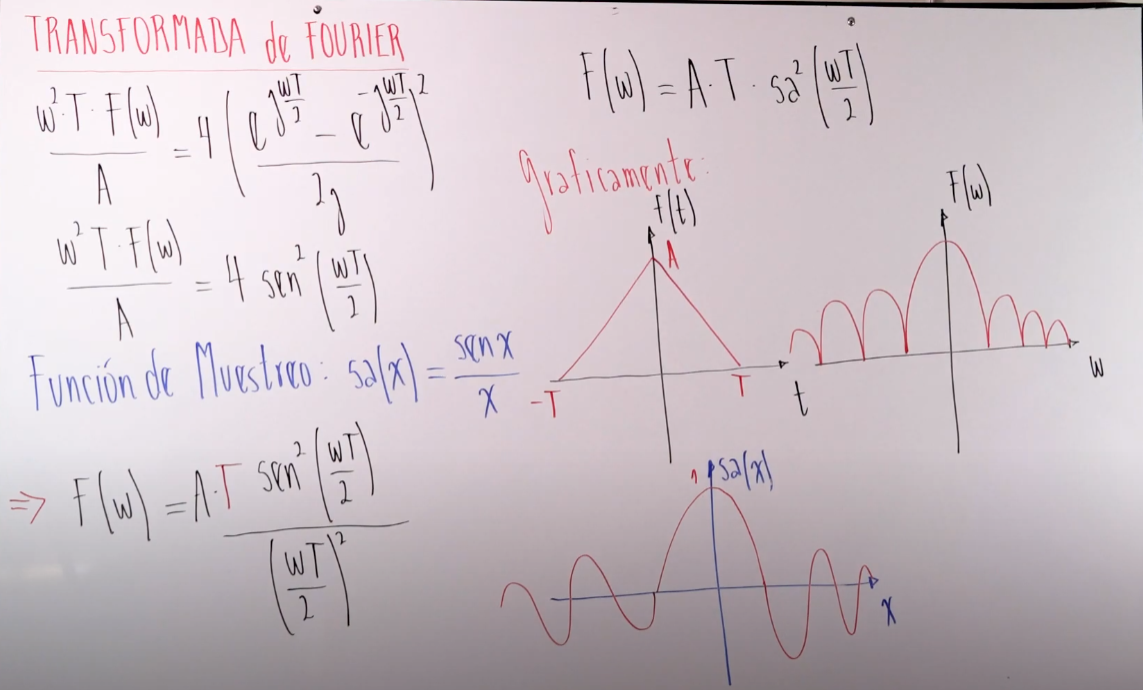 TRANSFORMADA de FOURIER
w²·T·F(w)/A = 4 ( (e^(jwT/2) − e^(-jwT/2)) / 2j )²
w²T·F(w)/A = 4 sen² (wT/2)
Función de Muestreo: Sa(x) = sen x / x
⇒ F(w) = A·T sen² (wT/2) / (wT/2)²
F(w) = A·T·Sa² (wT/2)
Graficamente:
f(t)
A
-T
T
t
F(w)
w
1
Sa(x)
x